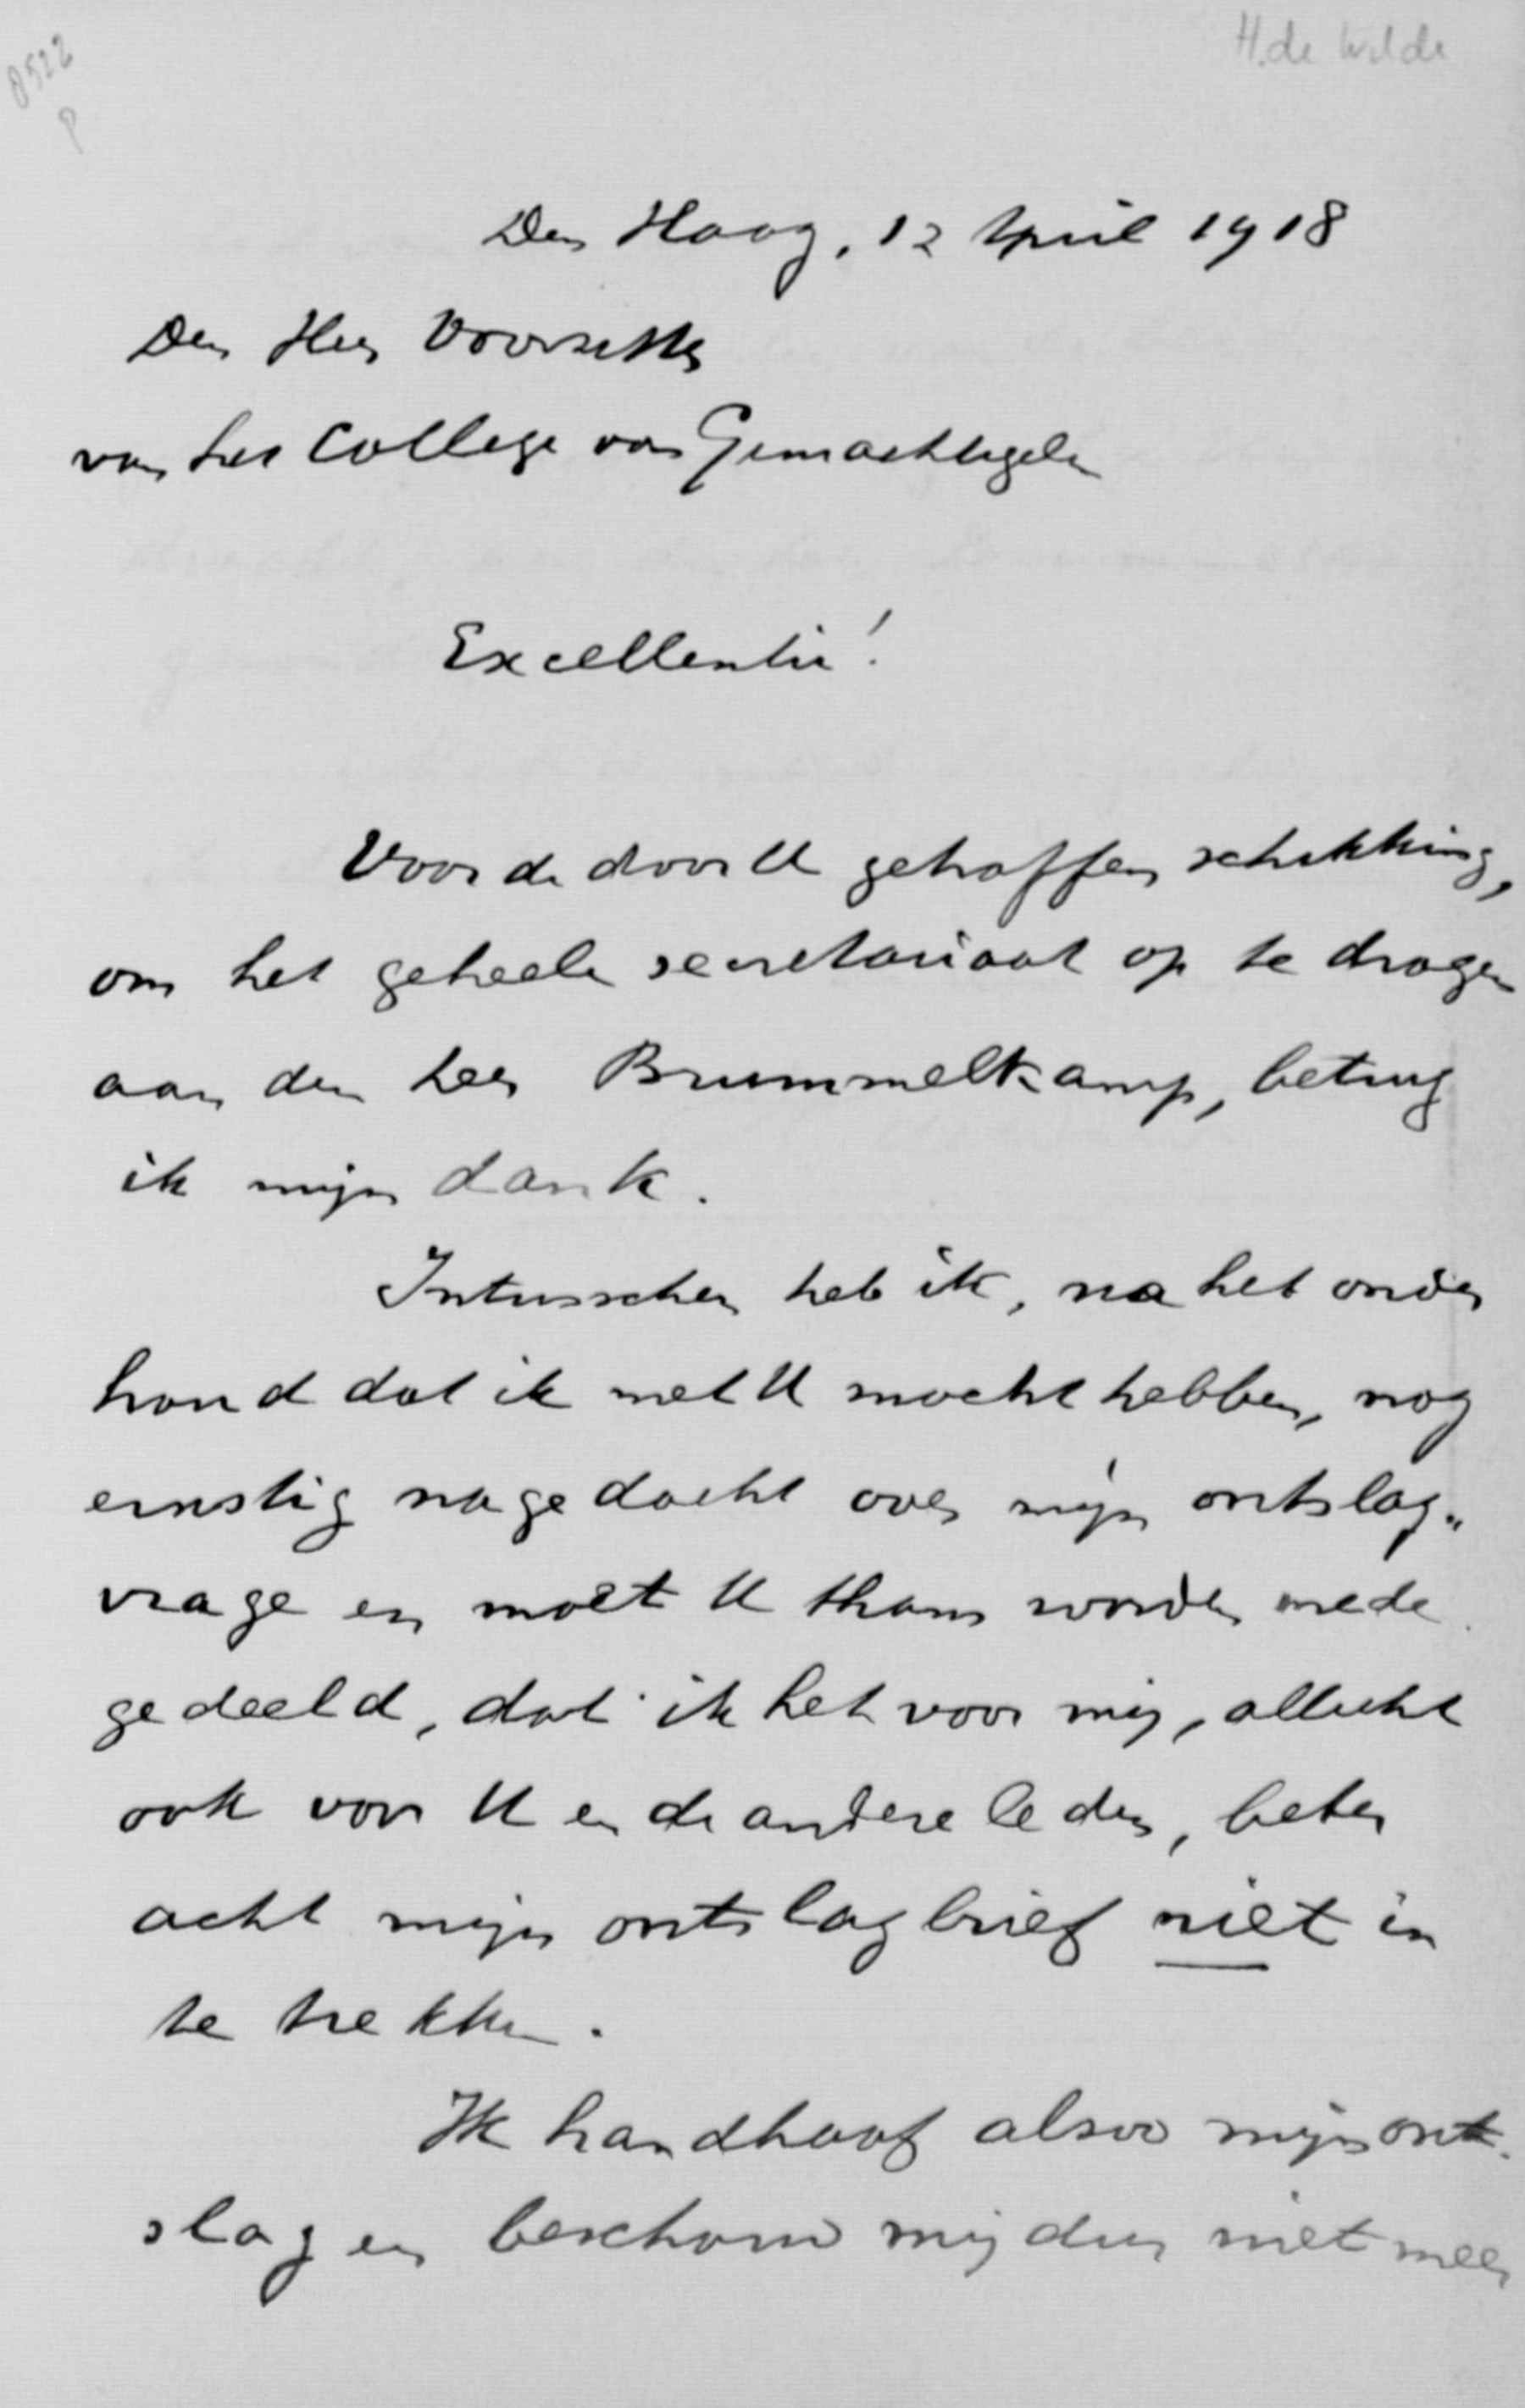 H. de Wilde
8522
P
Den Haag, 12 April 1918
Den Heer Voorzitter
van het College van Gemachtigden
Excellentie!
Voor de door U getroffen schikking,
om het geheele secretariaat op te dragen
aan den heer Brummelkamp, betuig
ik mijn dank.
Intusschen heb ik, na het onder
houd dat ik met U mocht hebben, nog
ernstig nagedacht over mijn ontslag„
vrage en moet U thans worden mede
gedeeld, dat ik het voor mij, allicht
ook voor U en de andere leden, beter
acht mijn ontslagbrief niet in
te trekken.
Ik handhaaf alsoo mijn ont-
slag en beschouw mij dus niet meer